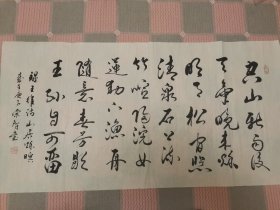 空山新雨後
天氣晚來秋
明月松間照
清泉石上流
竹喧歸浣女
蓮動下漁舟
隨意春芳歇
王孫自可留
錄王維詩山居秋暝